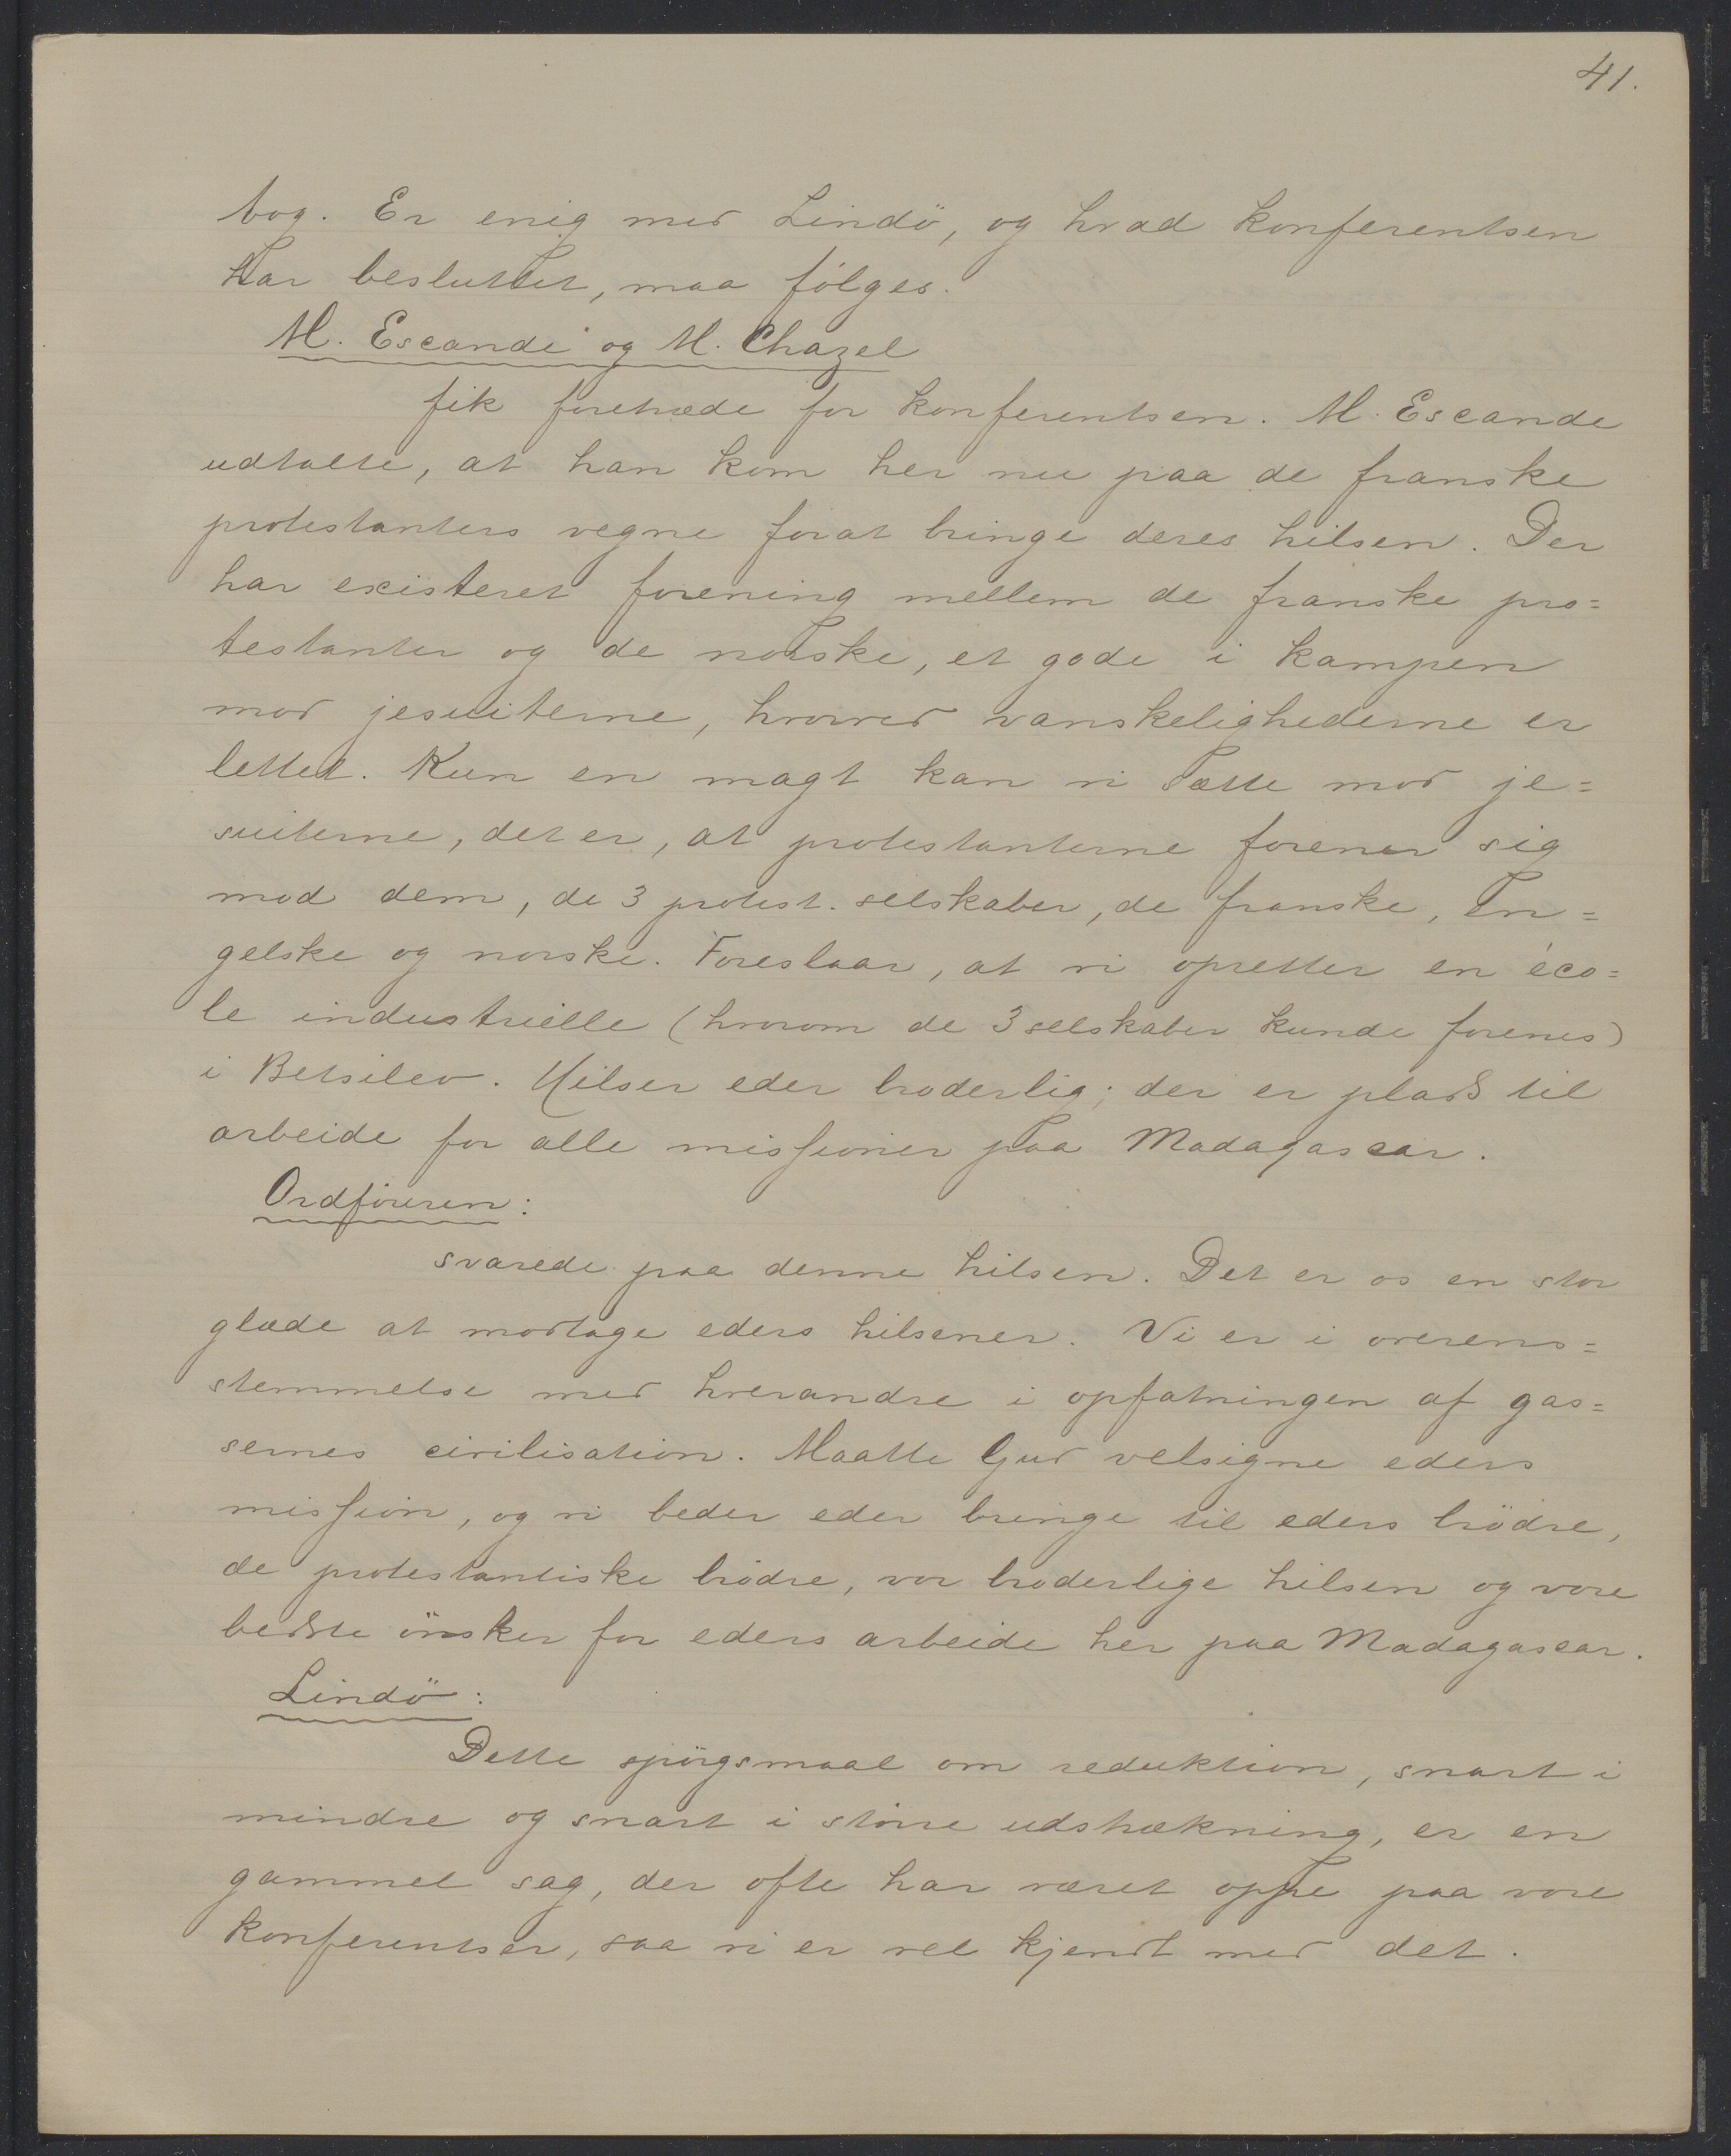 41.
bog. Er enig med Lindö, og hvad konferentsen
har besluttet, maa fölges.
M. Escande og M. Chazel
fik foretræde for konferentsen. M. Escande
udtalte, at han kom her nu paa de franske
protestanters vegne forat bringe deres hilsen. Der
har existeret forening mellem de franske pro=
testanter og de norske, et gode i kampen
mod jesuiterne, hvorved vanskelighederne er
lettet. Kun en magt kan vi sætte mod je=
suiterne, det er, at protestanterne forener sig
mod dem, de 3 protest. selskaber, de franske, en=
gelske og norske. Foreslaar, at vi opretter en éco=
le industrielle (hvorom de 3 selskaber kunde forenes)
i Betsileo. Hilser eder broderlig; der er plads til
arbeide for alle missioner paa Madagascar.
Ordföreren:
svarede paa denne hilsen. Det er os en stor
glæde at modtage eders hilsener. Vi er i overens=
stemmelse med hverandre i opfatningen af gas=
sernes civilisation. Maatte Gud velsigne eders
mission, og vi beder eder bringe til eders brödre,
de protestantiske brödre, vor broderlige hilsen og vore
bedste önsker for eders arbeide her paa Madagascar.
Lindö:
Dette spörgsmaal om reduktion, snart i
mindre og snart i större udstrækning, er en
gammel sag, der ofte har været oppe paa vore
konferentser, saa vi er vel kjendt med det.